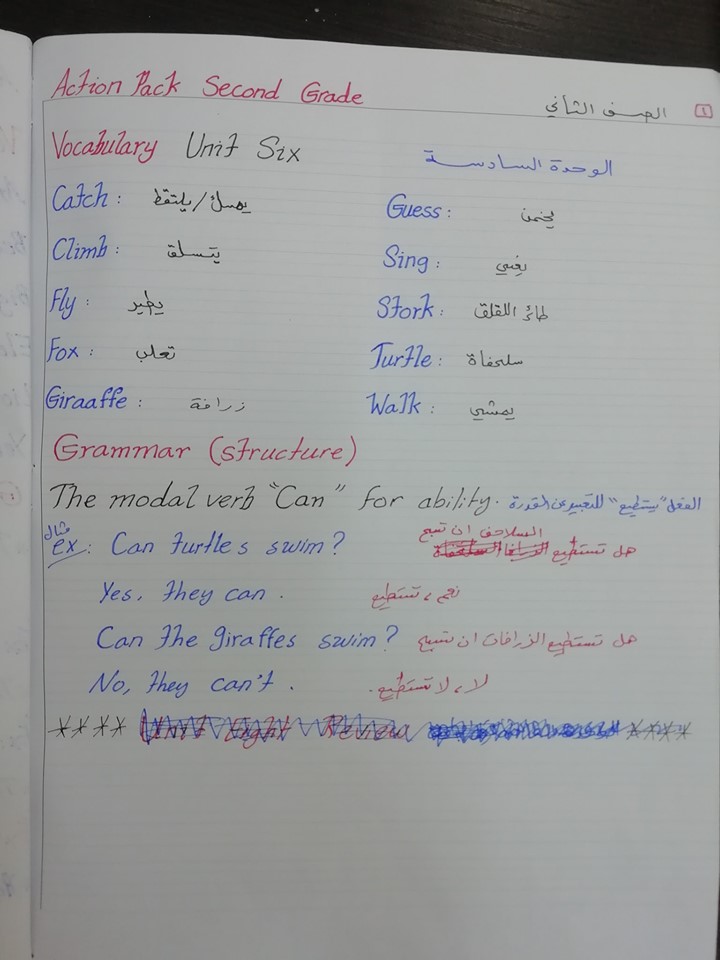 Action Pack Second Grade الصف الثاني 1
Vocabulary Unit Six الوحدة السادسة
Catch : يمسك/يلتقط Guess : يخمن
Climb : يتسلق Sing : يغني
Fly : يطير Stork : طائر اللقلق
Fox : تعلب Turtle : سلحفاة
Giraaffe : زرافة Walk : يمشي
Grammar (structure)
The modal verb "Can" for ability. الفعل "يستطيع" للتعبير عن القدرة
مثال السلاحف ان تسبح
ex : Can turtles swim? هل تستطيع
Yes, they can . نعم ، تستطيع
Can the giraffes swim? هل تستطيع الزرافات ان تسبح
No, they can't . لا ، لا تستطيع .
**** Unit Eight Review ****